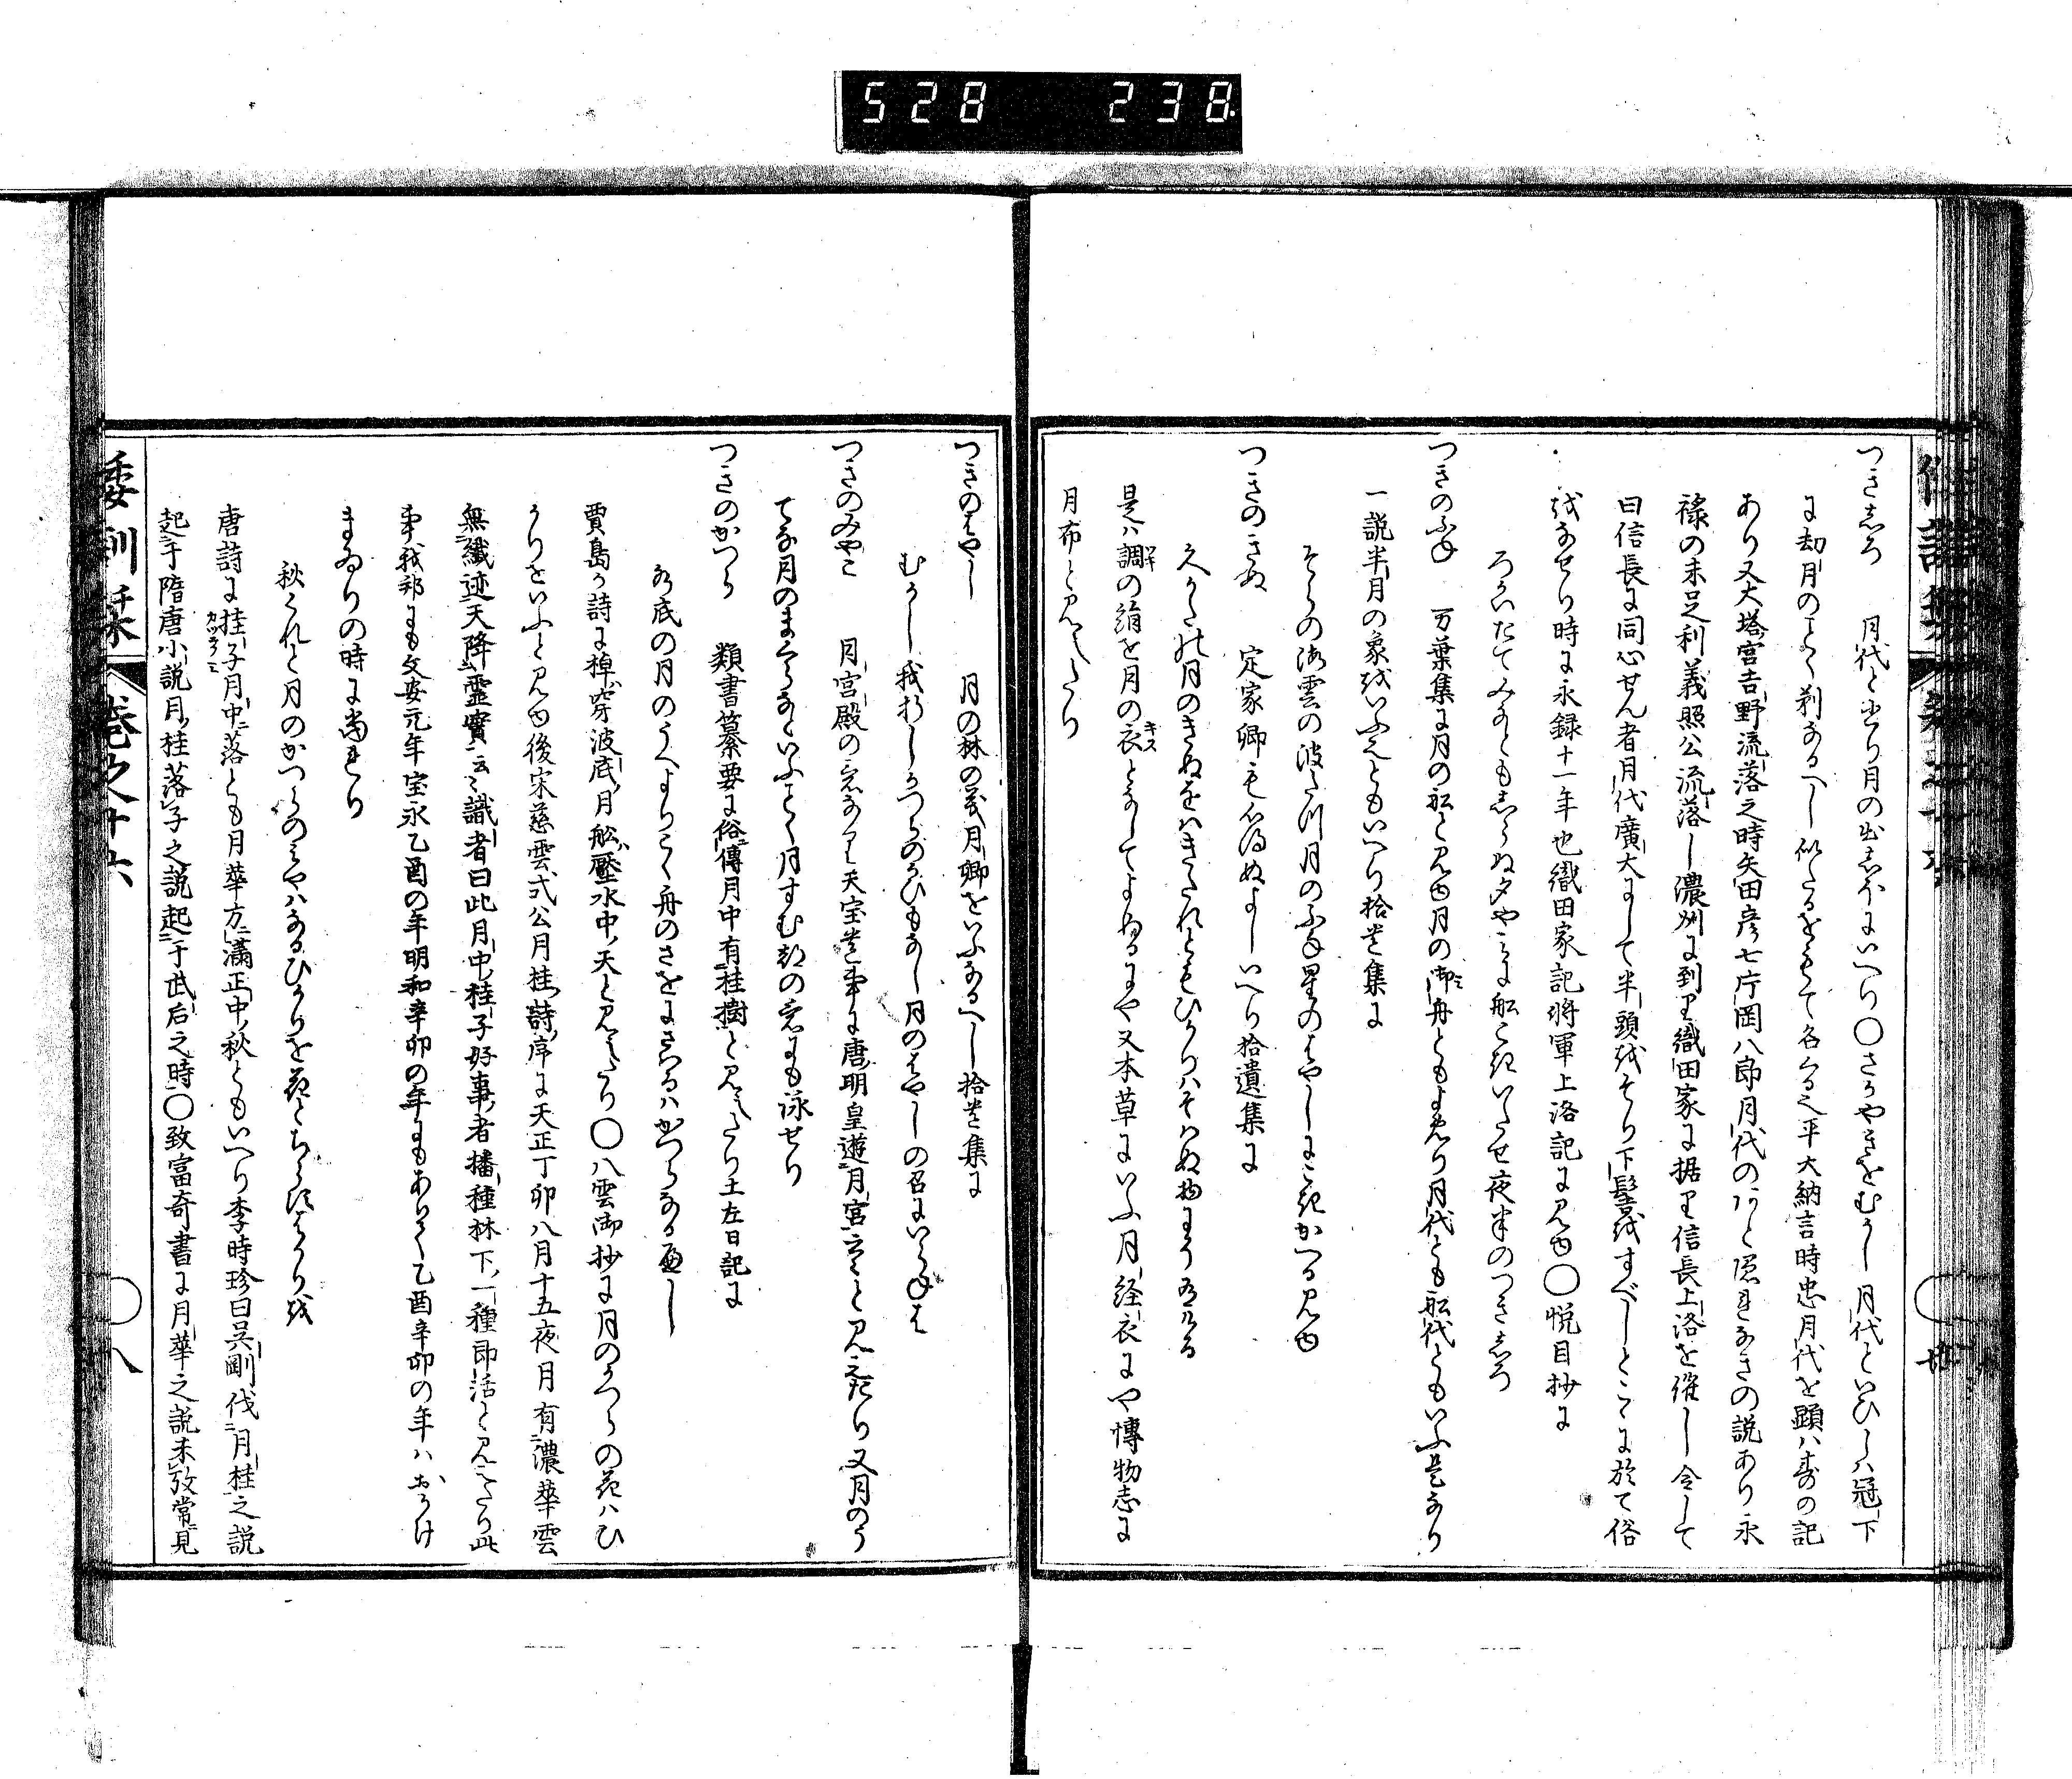 528 238
つきしろ 月代と書り月の出しほにいへり〇さかやきをむかし月代といひしハ冠下
に却月のことく剃なるへし似たるをもて名くる也平大納言時忠月代を顕ハすの記
あり又大塔宮吉野流落之時矢田彦七片岡八郎月代のあと隠れなきの説あり永
禄の末足利義照公流落し濃州に到り織田家に据り信長上洛を催し令して
曰信長に同心せん者月代廣大にして半頭をそり下髪をすべしとこゝに於て俗
をなせり時に永録十一年也織田家記将軍上洛記に見ゆ〇悦目抄に
ろかいたてみちもしらぬ夕やみに船こきいたせ夜半のつきしろ
つきのふね 万葉集に月の船と見ゆ月の御舟ともよめり月代とも船代ともいふ是なり
一説半月の象をいふ也ともいへり拾遺集に
そらの海雲の波たつ月のふね星のはやしにこきかへる見ゆ
つきのきぬ 定家卿も心得ぬよしいへり拾遺集に
久かたの月のきぬをハきたれともひかりハそハぬ物にそ有ける
是ハ調の絹を月の衣となしてよめるにや又本草にいふ月経衣にや博物志に
月布と見えたり
つきのはやし 月の林の義月卿をいふなるへし拾遺集に
むかし我折しかつらのかひもなし月のはやしの召にいらねは
つきのみやこ 月宮殿の意なり天宝遺事に唐明皇遊月宮云々と見えたり又月のう
てな月のまくらなといふことく月すむ都の意にも詠せり
つきのかつら 類書纂要に俗傳月中有桂樹と見えたり土左日記に
水底の月のうへよりこく舟のさをにさはるハかつらなるへし
賈島か詩に棹穿波底月舩壓水中天と見えたり〇八雲御抄に月のかつらの花ハひ
かりをいふと見ゆ後宋慈雲式公月桂詩序に天正丁卯八月十五夜月有濃華雲
無纖迹天降靈實云々識者曰此月中桂子好事者播種林下一種即活と見えたり此
事我邦にも文安元年宝永乙酉の年明和辛卯の年にもありて乙酉辛卯の年ハおかけ
まゐりの時に當れり
秋くれと月のかつらのみやハなるひかりを花とちらすはかりを
唐詩に桂子月中落とも月華方満正中秋ともいへり李時珍曰呉剛伐月桂之説
起于隋唐小説月桂落子之説起于武后之時〇致富奇書に月華之説未攷常見
倭訓栞 巻之十六 〇八